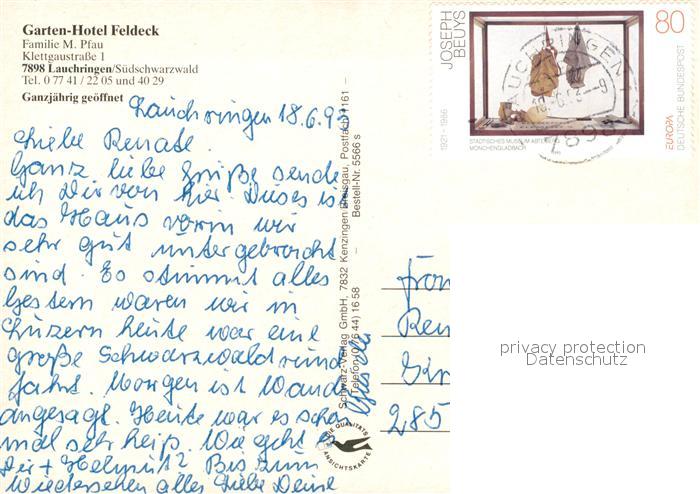 Garten-Hotel Feldeck
Familie M. Pfau
Klettgaustraße 1
7898 Lauchringen/Südschwarzwald
Tel. 0 77 41 / 22 05 und 40 29
Ganzjährig geöffnet
Lauchringen 18.6.93
Liebe Renate.
Ganz liebe Grüße sende
ich Dir von hier. Dieses ist
das Haus worin wir
sehr gut untergebracht
sind. Es stimmt alles
Gestern waren wir in
Luzern heute war eine
große Schwarzwaldrund
fahrt. Morgen ist Wand
angesagt. Heute war es schon
mal sehr heiß. Wie geht es
Dir + Helmut? Bis zum
Wiedersehen alles Liebe Deine
Schwarz-Verlag GmbH, 7832 Kenzingen/Breisgau, Postfach 1161 –
– Telefon (0 76 44) 16 58 – Bestell-Nr. 5566 s
DIE QUALITÄTS
ANSICHTSKARTE
JOSEPH
BEUYS
1921 - 1986
80
STÄDTISCHES MUSEUM ABTEIBERG
MÖNCHENGLADBACH
EUROPA
DEUTSCHE BUNDESPOST
LAUCHRINGEN 1
7898
Ren
285
privacy protection
Datenschutz